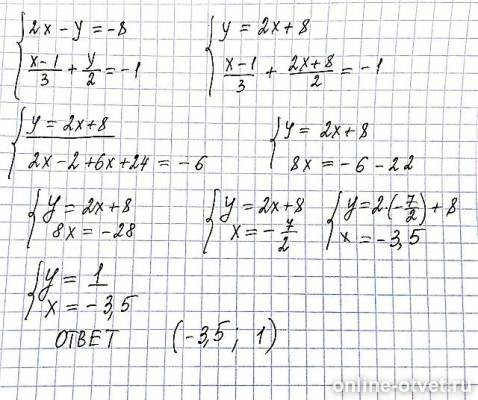 { 2x - y = -8
{ (x-1)/3 + y/2 = -1
{ y = 2x+8
{ (x-1)/3 + (2x+8)/2 = -1
{ y = 2x+8
{ 2x-2+6x+24 = -6
{ y = 2x+8
{ 8x = -6-22
{ y = 2x+8
{ 8x = -28
{ y = 2x+8
{ x = -7/2
{ y = 2·(-7/2)+8
{ x = -3,5
{ y = 1
{ x = -3,5
ОТВЕТ (-3,5; 1)
online-otvet.ru